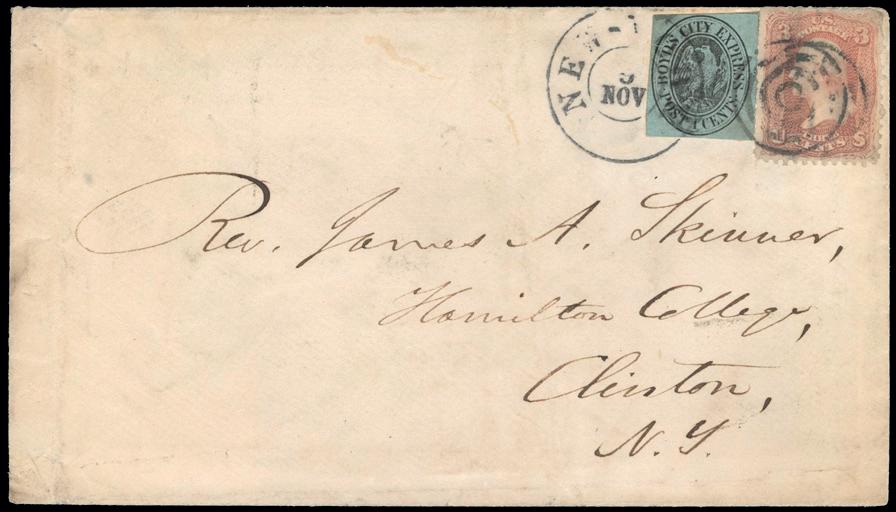 NEW-
5
NOV
BOYD'S CITY EXPRESS
POST 1 CENTS
U.S.
POSTAGE
3
CENTS
U S
Rev. James A. Skinner,
Hamilton College,
Clinton,
N.Y.